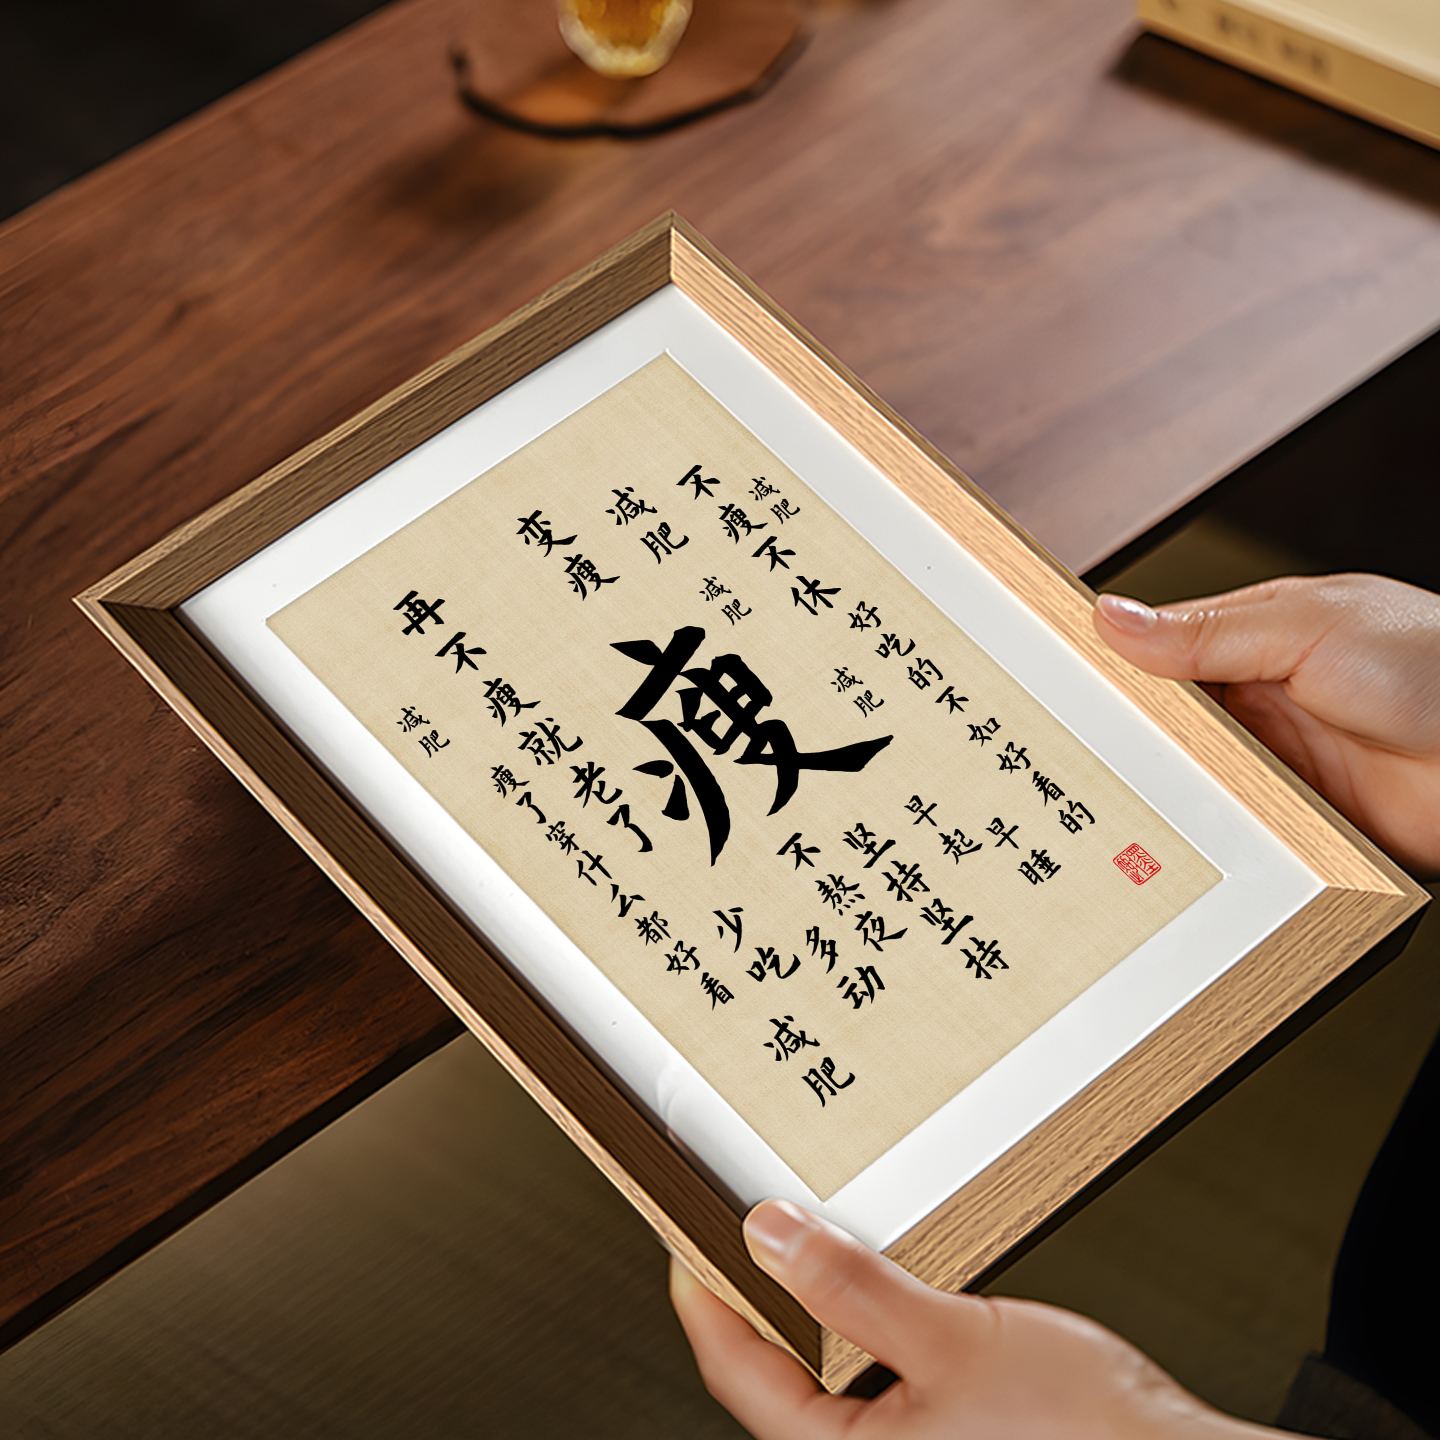 减肥
不瘦不休
好吃的不如好看的
减肥
减肥
减肥
早起早睡
变瘦
瘦
坚持坚持
不熬夜
多动
少吃
再不瘦就老了
减肥
瘦了穿什么都好看
减肥